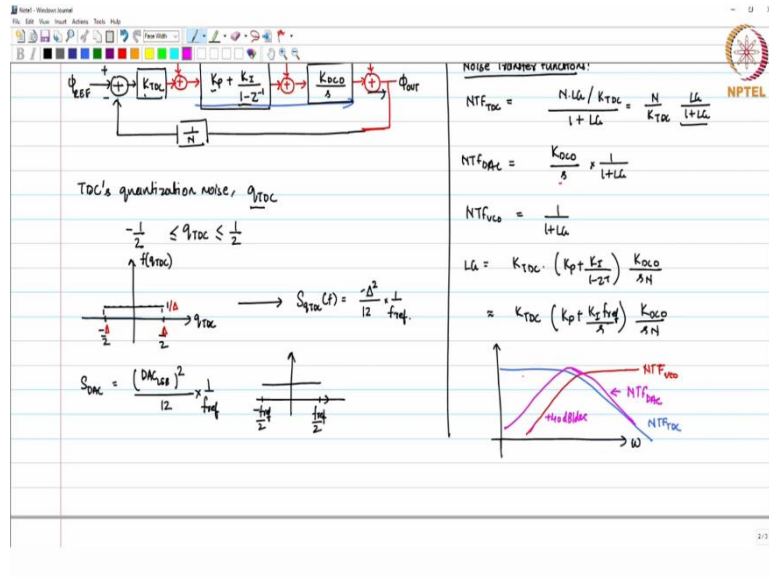 Note1 - Windows Journal
File Edit View Insert Actions Tools Help
B I
NPTEL
Φ_REF + - + K_TDC + K_P + K_I/(1-Z^-1) + K_DCO/s + Φ_OUT
1/N
TDC's quantization noise, q_TDC
-1/2 ≤ q_TDC ≤ 1/2
f(q_TDC)
1/Δ
-Δ/2 Δ/2 q_TDC
S_qTDC(f) = -Δ²/12 × 1/fref.
S_DAC = (DAC_LSB)²/12 × 1/fref
-fref/2 fref/2
Noise Transfer Functions:
NTF_TDC = N.LG/K_TDC / 1+LG = N/K_TDC LG/1+LG
NTF_DAC = K_DCO/s × 1/1+LG
NTF_VCO = 1/1+LG
LG = K_TDC. (K_P + K_I/1-Z^-1) K_DCO/sN
≈ K_TDC (K_P + K_I fref/s) K_DCO/sN
NTF_VCO
NTF_DAC
+40dB/dec
NTF_TDC
ω
2/3